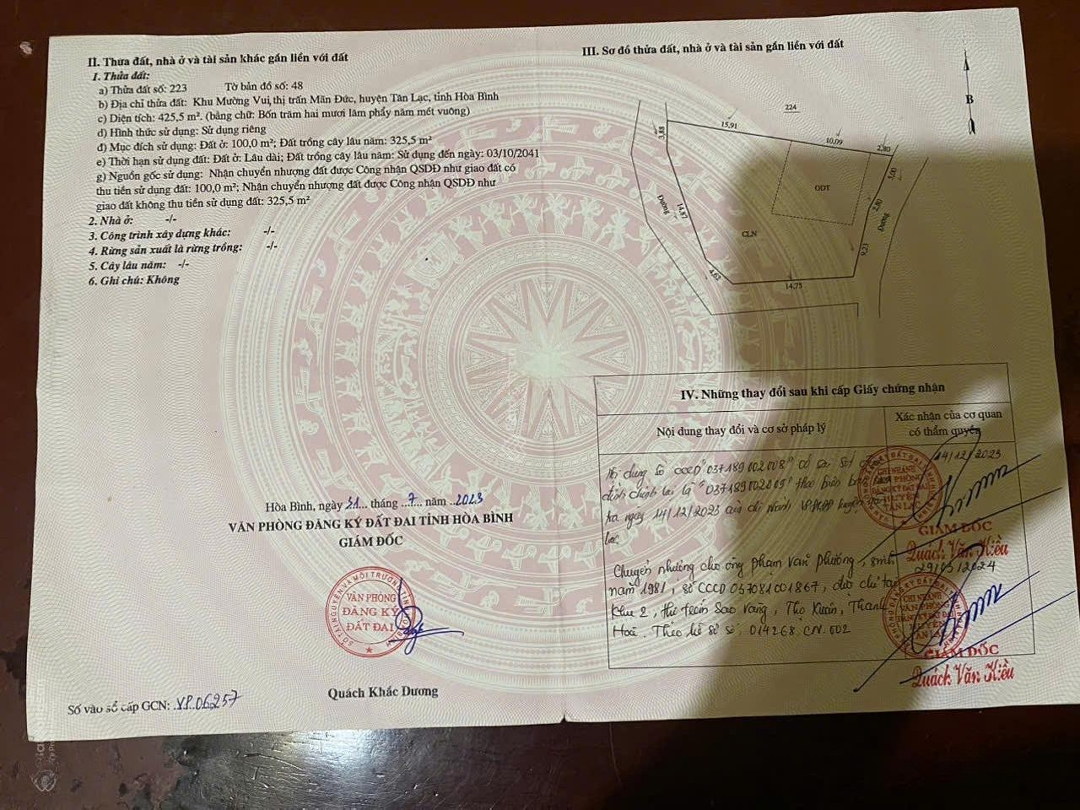 II. Thửa đất, nhà ở và tài sản khác gắn liền với đất
1. Thửa đất:
a) Thửa đất số: 223 Tờ bản đồ số: 48
b) Địa chỉ thửa đất: Khu Mường Vui, thị trấn Mãn Đức, huyện Tân Lạc, tỉnh Hòa Bình
c) Diện tích: 425,5 m². (bằng chữ: Bốn trăm hai mươi lăm phẩy năm mét vuông)
d) Hình thức sử dụng: Sử dụng riêng
đ) Mục đích sử dụng: Đất ở: 100,0 m²; Đất trồng cây lâu năm: 325,5 m²
e) Thời hạn sử dụng: Đất ở: Lâu dài; Đất trồng cây lâu năm: Sử dụng đến ngày: 03/10/2041
g) Nguồn gốc sử dụng: Nhận chuyển nhượng đất được Công nhận QSDĐ như giao đất có
thu tiền sử dụng đất: 100,0 m²; Nhận chuyển nhượng đất được Công nhận QSDĐ như
giao đất không thu tiền sử dụng đất: 325,5 m²
2. Nhà ở: -/-
3. Công trình xây dựng khác: -/-
4. Rừng sản xuất là rừng trồng: -/-
5. Cây lâu năm: -/-
6. Ghi chú: Không
Hòa Bình, ngày 31 tháng 7 năm 2023
VĂN PHÒNG ĐĂNG KÝ ĐẤT ĐAI TỈNH HÒA BÌNH
GIÁM ĐỐC
VĂN PHÒNG
ĐĂNG KÝ
ĐẤT ĐAI
Quách Khắc Dương
Số vào sổ cấp GCN: VP.06257
III. Sơ đồ thửa đất, nhà ở và tài sản gắn liền với đất
B
224
15,91
3,88
10,09
2,80
5,00
ODT
2,80
Đường
Đường
14,87
CLN
9,23
4,62
14,75
IV. Những thay đổi sau khi cấp Giấy chứng nhận
Nội dung thay đổi và cơ sở pháp lý
Xác nhận của cơ quan
có thẩm quyền
Nội dung số CCCD "037189002008" có sai sót
đính chính lại là
ra ngày 14/12/2023 của chi nhánh VPĐKĐĐ huyện
Lạc.
14/12/2023
CHI NHÁNH
VĂN PHÒNG
ĐĂNG KÝ ĐẤT ĐAI
HUYỆN
TÂN LẠC
GIÁM ĐỐC
Quách Văn Kiều
Chuyển nhượng cho ông Phạm Văn Phường, sinh
năm 1981, số CCCD 037081001867, địa chỉ tại
Khu 2, thị trấn Sao Vàng, Thọ Xuân, Thanh
Hoá. Theo hồ sơ số 014268.CN.002
29/05/2024
CHI NHÁNH
VĂN PHÒNG
ĐĂNG KÝ ĐẤT ĐAI
HUYỆN
TÂN LẠC
GIÁM ĐỐC
Quách Văn Kiều